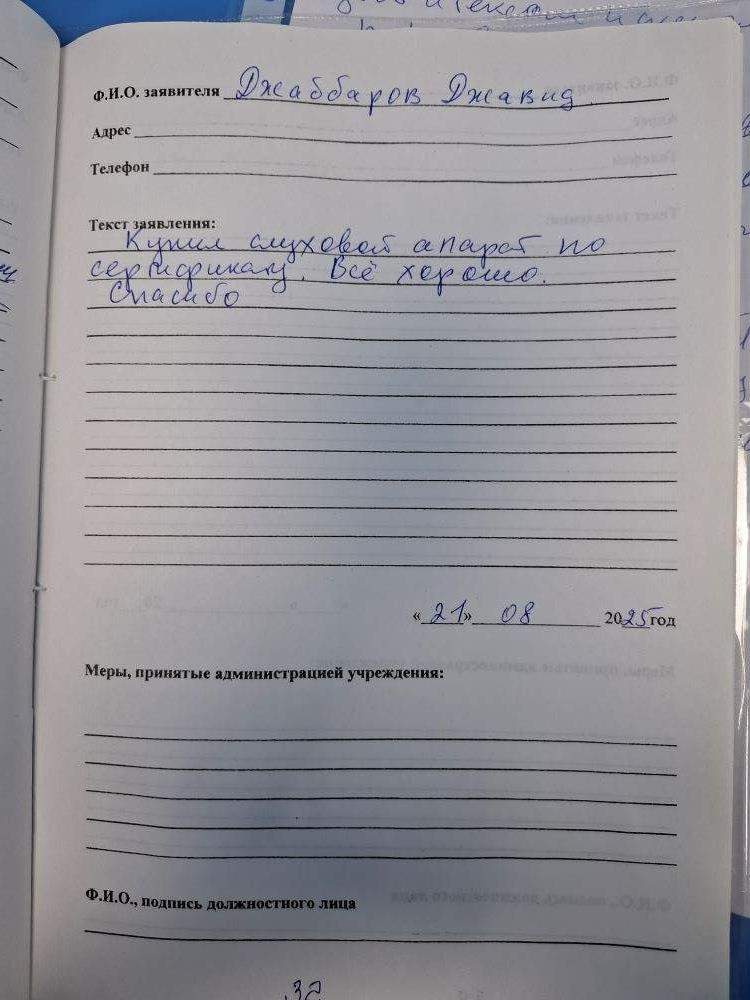 Ф.И.О. заявителя Джаббаров Джавид
Адрес
Телефон
Текст заявления:
Купил слуховой апарат по
сертификату. Всё хорошо.
Спасибо
«21» 08 2025 год
Меры, принятые администрацией учреждения:
Ф.И.О., подпись должностного лица
32